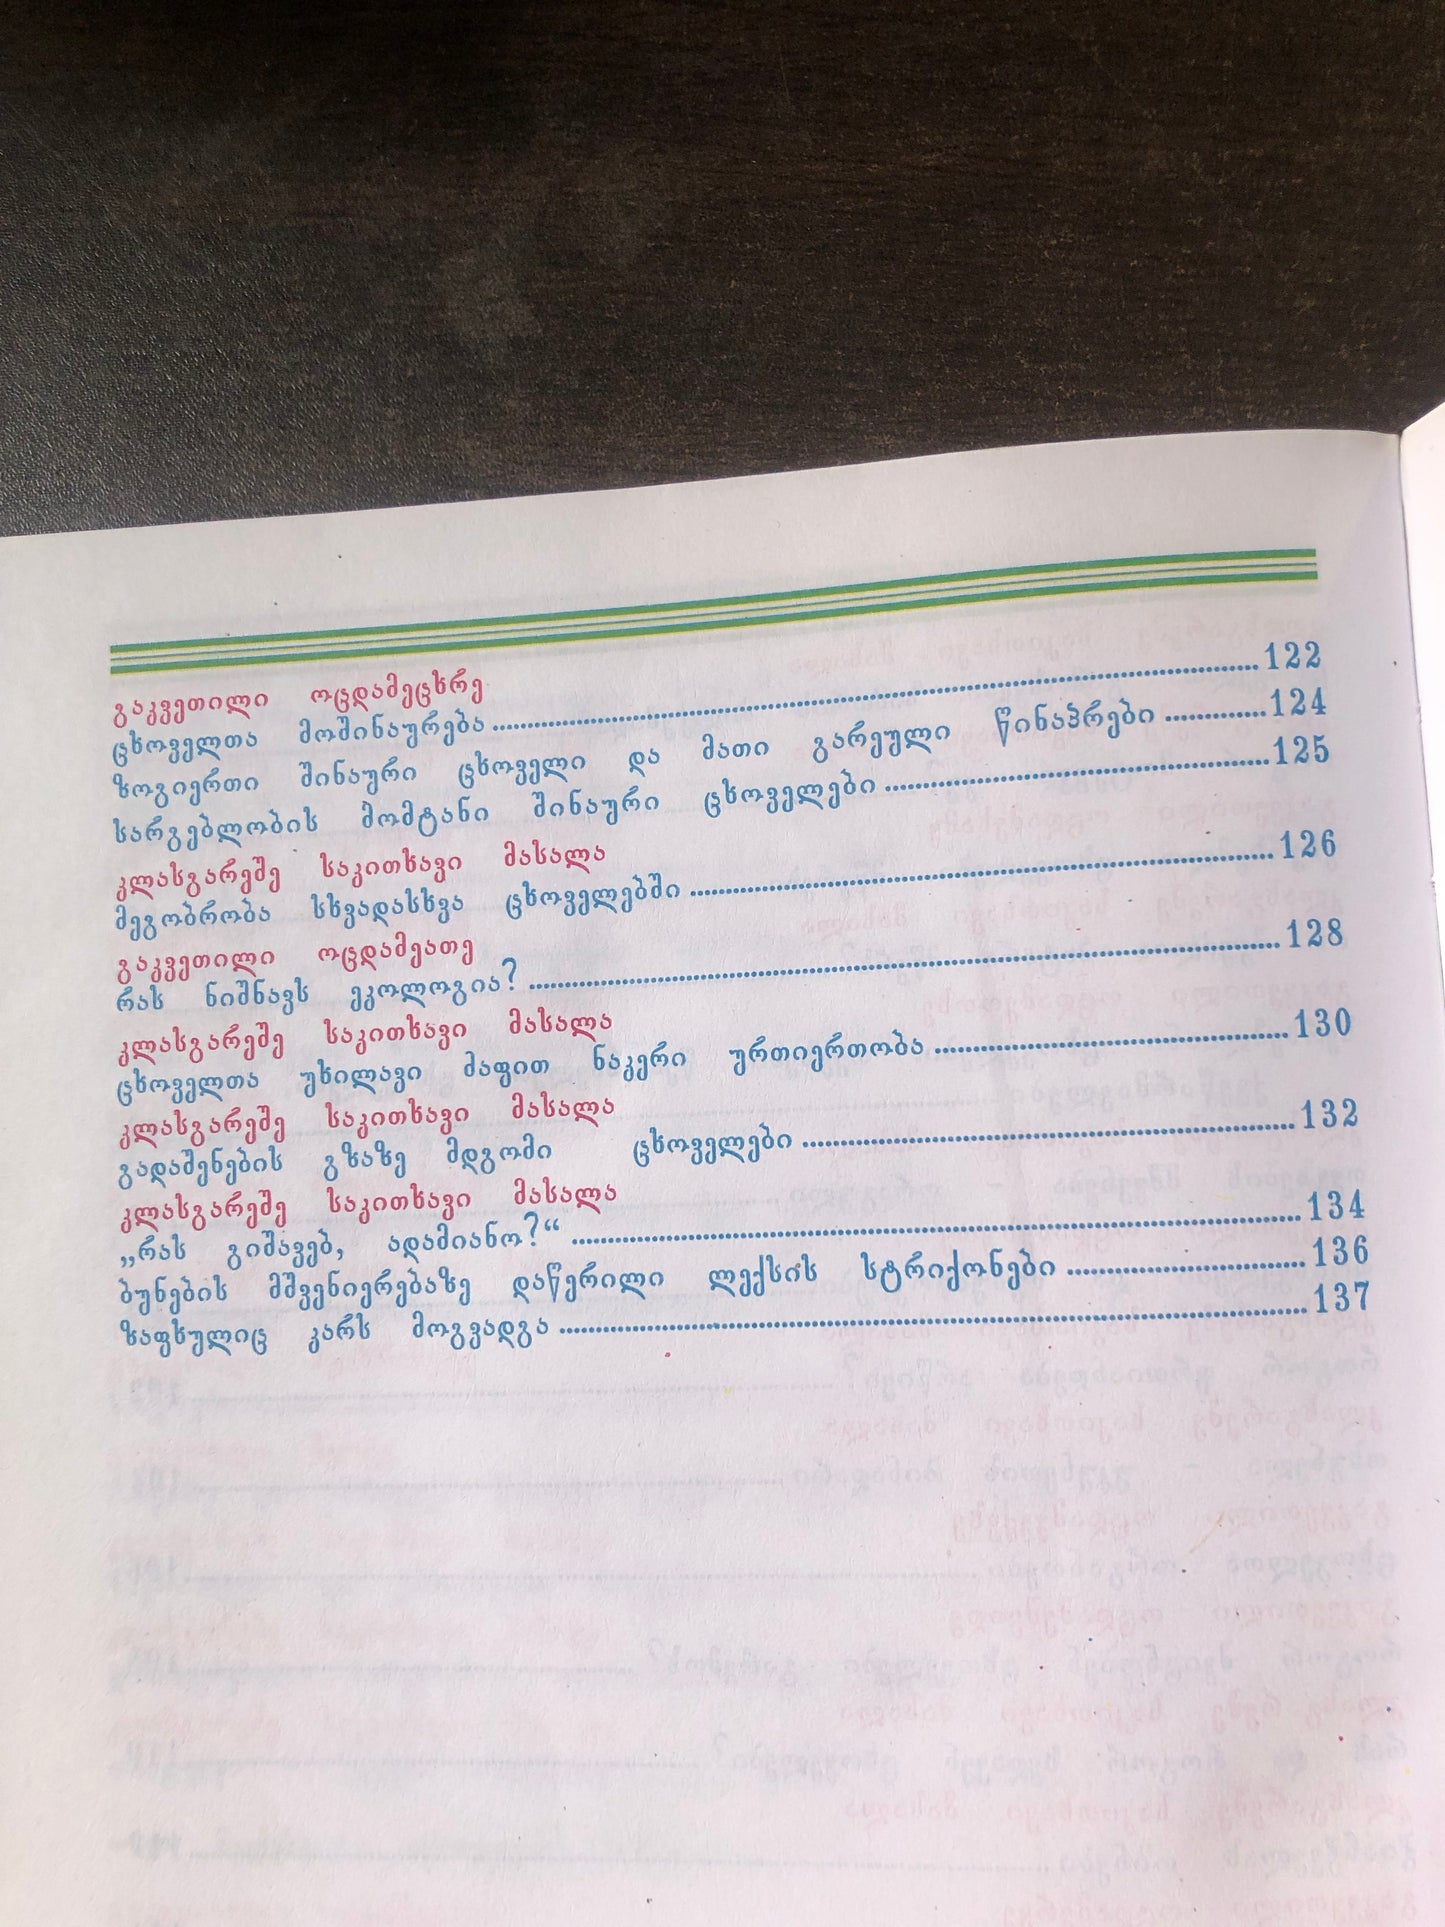 გაკვეთილი ოცდამეცხრე
ცხოველთა მოშინაურება 122
ზოგიერთი შინაური ცხოველი და მათი გარეული წინაპრები 124
სარგებლობის მომტანი შინაური ცხოველები 125
კლასგარეშე საკითხავი მასალა
მეგობრობა სხვადასხვა ცხოველებში 126
გაკვეთილი ოცდამეათე
რას ნიშნავს ეკოლოგია? 128
კლასგარეშე საკითხავი მასალა
ცხოველთა უხილავი მაფით ნაკერი ურთიერთობა 130
კლასგარეშე საკითხავი მასალა
გადაშენების გზაზე მდგომი ცხოველები 132
კლასგარეშე საკითხავი მასალა
„რას გიშავებ, ადამიანო?“ 134
ბუნების მშვენიერებაზე დაწერილი ლექსის სტრიქონები 136
ზაფხულიც კარს მოგვადგა 137